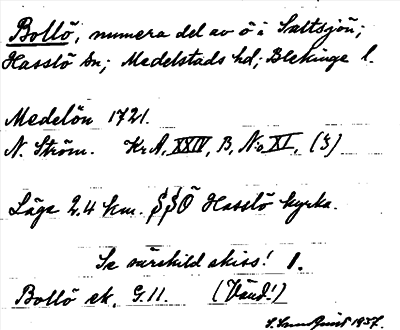 Bollö, numera del av ö i Saltsjön;
Hasslö sn; Medelstads hd; Blekinge l.
Medelön 1721.
N. Ström. Kr.A, XXIV, B, No XI, (3)
Läge 2.4 km. SSÖ Hasslö kyrka.
Se särskild skiss! 1.
Bollö ek. G.11. (Vänd!)
1937.